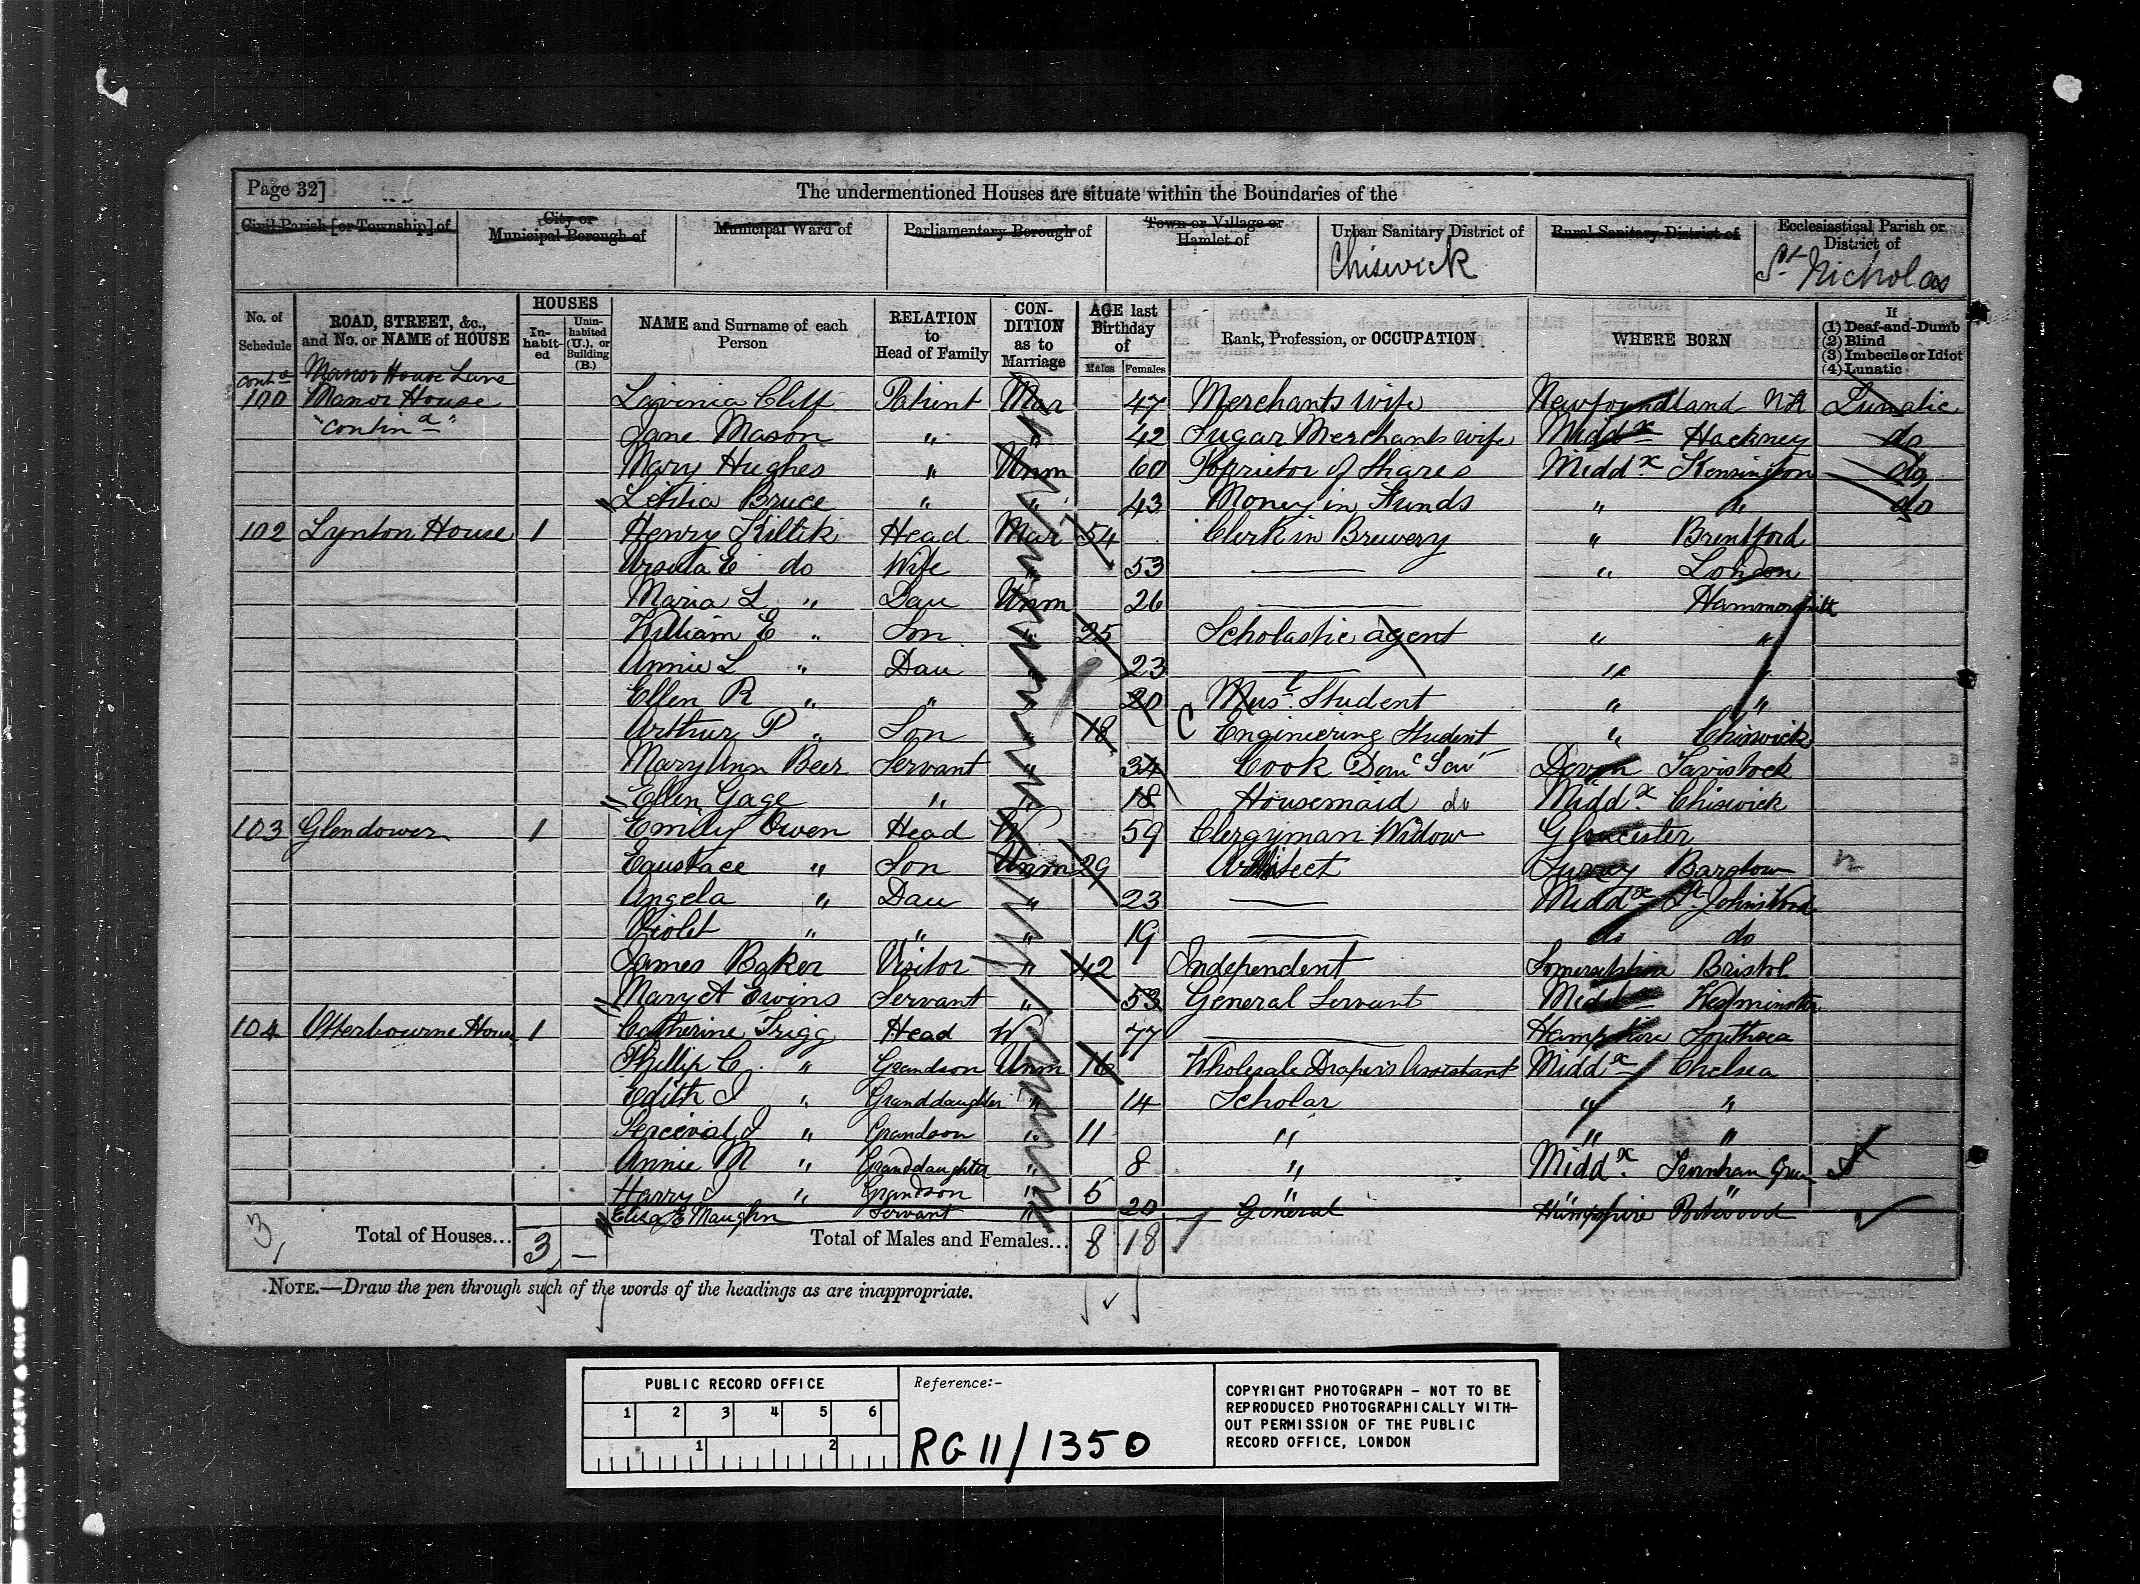 Page 32]
The undermentioned Houses are situate within the Boundaries of the
Civil Parish [or Township] of
City or Municipal Borough of
Municipal Ward of
Parliamentary Borough of
Town or Village or Hamlet of
Urban Sanitary District of
Chiswick
Rural Sanitary District of
Ecclesiastical Parish or District of
St Nicholas
No. of Schedule
ROAD, STREET, &c., and No. or NAME of HOUSE
HOUSES
In-habit-ed
Unin-habited (U.), or Building (B.)
NAME and Surname of each Person
RELATION to Head of Family
CON-DITION as to Marriage
AGE last Birthday of
Males Females
Rank, Profession, or OCCUPATION
WHERE BORN
If
(1) Deaf-and-Dumb
(2) Blind
(3) Imbecile or Idiot
(4) Lunatic
Contd Manor House Lane
100 Manor House Lavinia Cliff Patient Mar 47 Merchants wife Newfoundland Lunatic
"Contind" Jane Mason " " 42 Sugar Merchants wife Middx Hackney do
Mary Hughes " Unm 60 Proprietor of Shares Middx Kensington do
Letitia Bruce " " 43 Money in Funds " " do
102 Lynton House 1 Henry Killik Head Mar 54 Clerk in Brewery " Brentford
Ursula E do Wife " 53 " London
Maria L " Dau Unm 26 Hammersmith
William E " Son " 25 Scholastic agent " "
Annie L " Dau " 23 " "
Ellen R " " " 20 Musl Student " "
Arthur P " Son " 18 C Engineering Student " Chiswick
Mary Ann Beer Servant " 34 Cook Domc Serv Devon Tavistock
Ellen Gage " " 18 Housemaid do Middx Chiswick
103 Glendower 1 Emily Owen Head W 59 Clergyman Widow Gloucester
Equstace " Son Unm 29 Architect Surrey
Angela " Dau " 23 Middx St Johns Wood
Violet " " " 19 do do
James Baker Visitor " 42 Independent Somersetshire Bristol
Mary A Ewins Servant " 53 General Servant Middx Westminster
104 Otterbourne House 1 Catherine Trigg Head W 77 Hampshire Southsea
Phillip C. " Grandson Unm 16 Wholesale Drapers Assistant Middx Chelsea
Edith J " Granddaughter " 14 Scholar " "
Percival J " Grandson " 11 " " "
Annie M " Granddaughter " 8 " Middx Turnham Grn
Harry J " Grandson " 5 " " "
Eliza E Maughn Servant " 20 General Hampshire
3
Total of Houses... 3 — Total of Males and Females... 8 18
NOTE.—Draw the pen through such of the words of the headings as are inappropriate.
PUBLIC RECORD OFFICE
1 2 3 4 5 6
1 2
Reference:-
RG 11/1350
COPYRIGHT PHOTOGRAPH - NOT TO BE
REPRODUCED PHOTOGRAPHICALLY WITH-
OUT PERMISSION OF THE PUBLIC
RECORD OFFICE, LONDON